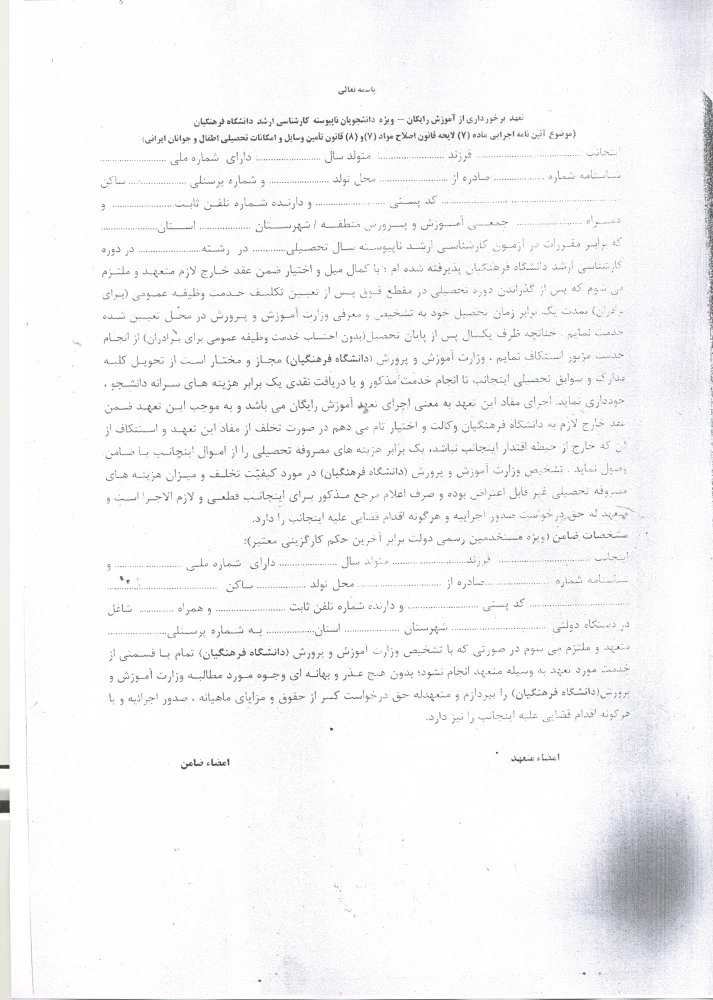 باسمه تعالی
تعهد برخورداری از آموزش رایگان – ویژه دانشجویان ناپیوسته کارشناسی ارشد دانشگاه فرهنگیان
(موضوع آئین نامه اجرایی ماده (۷) لایحه قانون اصلاح مواد (۷)و (۸) قانون تأمین وسایل و امکانات تحصیلی اطفال و جوانان ایرانی)
اینجانب .......................... فرزند ................ متولد سال ................ دارای شماره ملی ................
شناسنامه شماره ............. صادره از ................ محل تولد ............... و شماره پرسنلی ............... ساکن
.......................... کد پستی ................ و دارنده شماره تلفن ثابت................ و
همراه ................ جمعی آموزش و پرورش منطقه / شهرستان ............. استان................
که برابر مقررات در آزمون کارشناسی ارشد ناپیوسته سال تحصیلی.......... در رشته................ در دوره
کارشناسی ارشد دانشگاه فرهنگیان پذیرفته شده ام ؛ با کمال میل و اختیار ضمن عقد خارج لازم متعهد و ملتزم
می شوم که پس از گذراندن دوره تحصیلی در مقطع فوق پس از تعیین تکلیف خدمت وظیفه عمومی (برای
برادران) بمدت یک برابر زمان تحصیل خود به تشخیص و معرفی وزارت آموزش و پرورش در محل تعیین شده
خدمت نمایم . چنانچه ظرف یکسال پس از پایان تحصیل(بدون احتساب خدمت وظیفه عمومی برای برادران) از انجام
خدمت مزبور استنکاف نمایم ، وزارت آموزش و پرورش (دانشگاه فرهنگیان) مجاز و مختار است از تحویل کلیه
مدارک و سوابق تحصیلی اینجانب تا انجام خدمت مذکور و یا دریافت نقدی یک برابر هزینه های سرانه دانشجو ،
خودداری نماید. اجرای مفاد این تعهد به معنی اجرای تعهد آموزش رایگان می باشد و به موجب این تعهد ضمن
عقد خارج لازم به دانشگاه فرهنگیان وکالت و اختیار تام می دهم در صورت تخلف از مفاد این تعهد و استنکاف از
آن که خارج از حیطه اقتدار اینجانب نباشد، یک برابر هزینه های مصروفه تحصیلی را از اموال اینجانب یا ضامن
وصول نماید . تشخیص وزارت آموزش و پرورش (دانشگاه فرهنگیان) در مورد کیفیت تخلف و میزان هزینه های
مصروفه تحصیلی غیر قابل اعتراض بوده و صرف اعلام مرجع مذکور برای اینجانب قطعی و لازم الاجرا است و
متعهد له حق درخواست صدور اجراییه و هرگونه اقدام قضایی علیه اینجانب را دارد.
مشخصات ضامن (ویژه مستخدمین رسمی دولت برابر آخرین حکم کارگزینی معتبر):
اینجانب ....................... فرزند................... متولد سال ............... دارای شماره ملی ................ و
شناسنامه شماره ............... صادره از ................... محل تولد ............ ساکن ..........................
.......................... کد پستی ................... و دارنده شماره تلفن ثابت ................... و همراه .......... شاغل
در دستگاه دولتی ....................... شهرستان ............. استان............ به شماره پرسنلی................
متعهد و ملتزم می شوم در صورتی که با تشخیص وزارت آموزش و پرورش (دانشگاه فرهنگیان) تمام یا قسمتی از
خدمت مورد تعهد به وسیله متعهد انجام نشود؛ بدون هیچ عذر و بهانه ای وجوه مورد مطالبه وزارت آموزش و
پرورش(دانشگاه فرهنگیان) را بپردازم و متعهدله حق درخواست کسر از حقوق و مزایای ماهیانه ، صدور اجرائیه و یا
هرگونه اقدام قضایی علیه اینجانب را نیز دارد.
امضاء متعهد امضاء ضامن